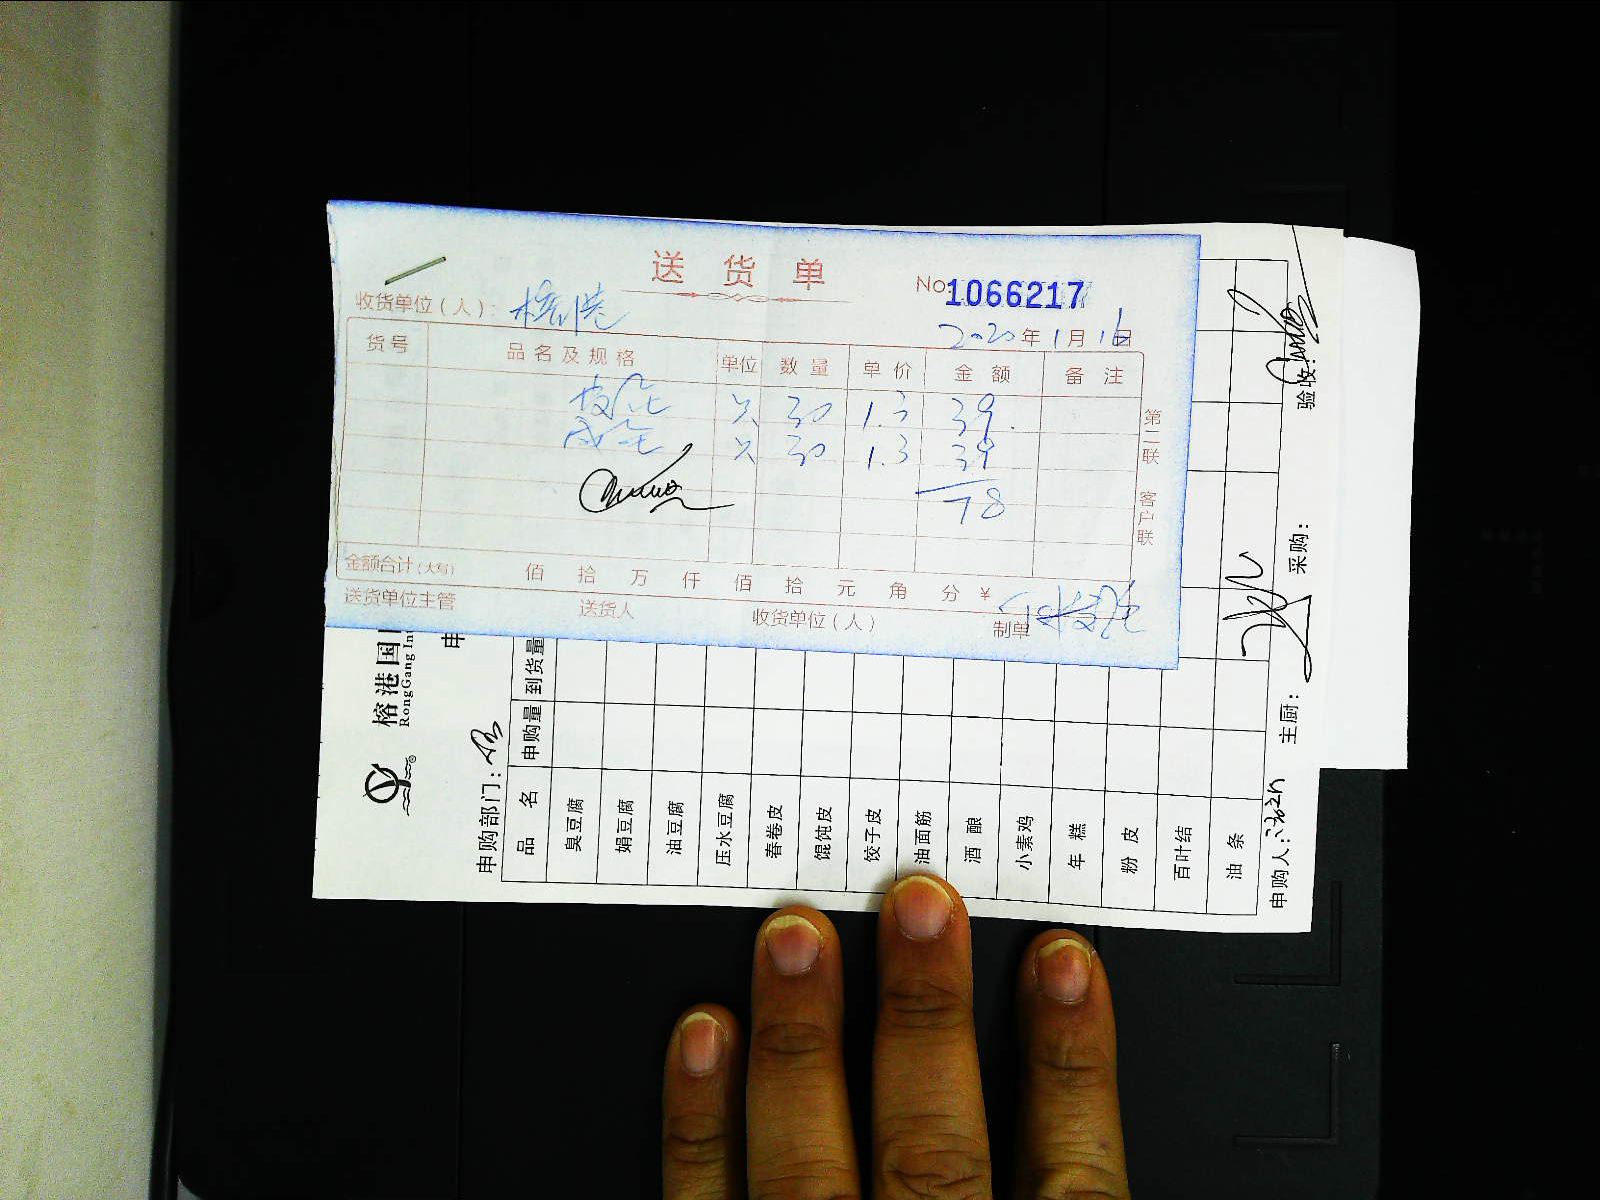 送货单
No.1066217
收货单位（人）：榕港
2020年1月16日
货号 品名及规格 单位 数量 单价 金额 备注
只 30 1.3 39
只 30 1.3 39
78
第二联 客户联
金额合计(大写) 佰 拾 万 仟 佰 拾 元 角 分 ¥
送货单位主管 送货人 收货单位（人） 制单
榕港国
RongGang In
申
申购部门：
品名 申购量 到货量
臭豆腐
娟豆腐
油豆腐
压水豆腐
春卷皮
馄饨皮
饺子皮
油面筋
酒酿
小素鸡
年糕
粉皮
百叶结
油条
申购人： 主厨： 采购： 验收：